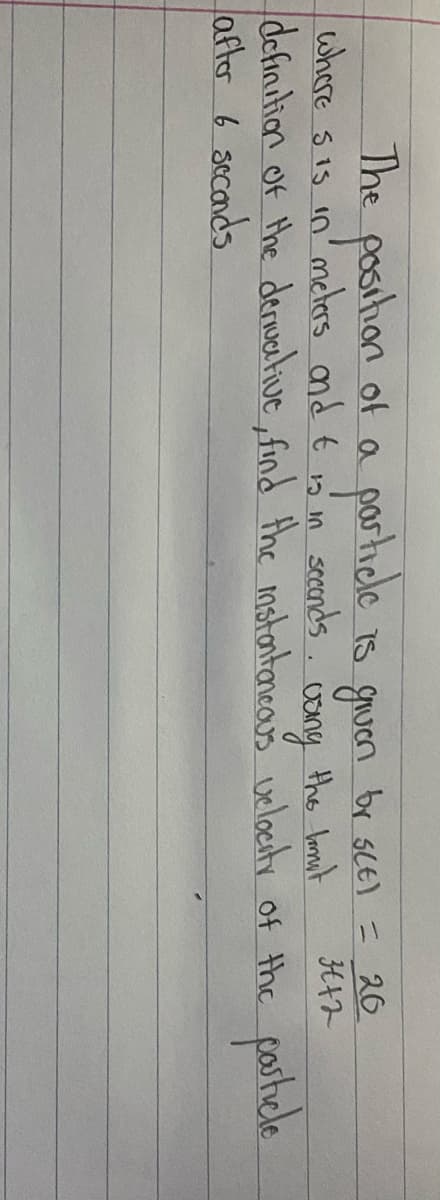 The position of a particle is given by s(t) = 20/3t+2
where s is in meters and t is in seconds. Using the limit
definition of the derivative, find the instantaneous velocity of the particle
after 6 seconds